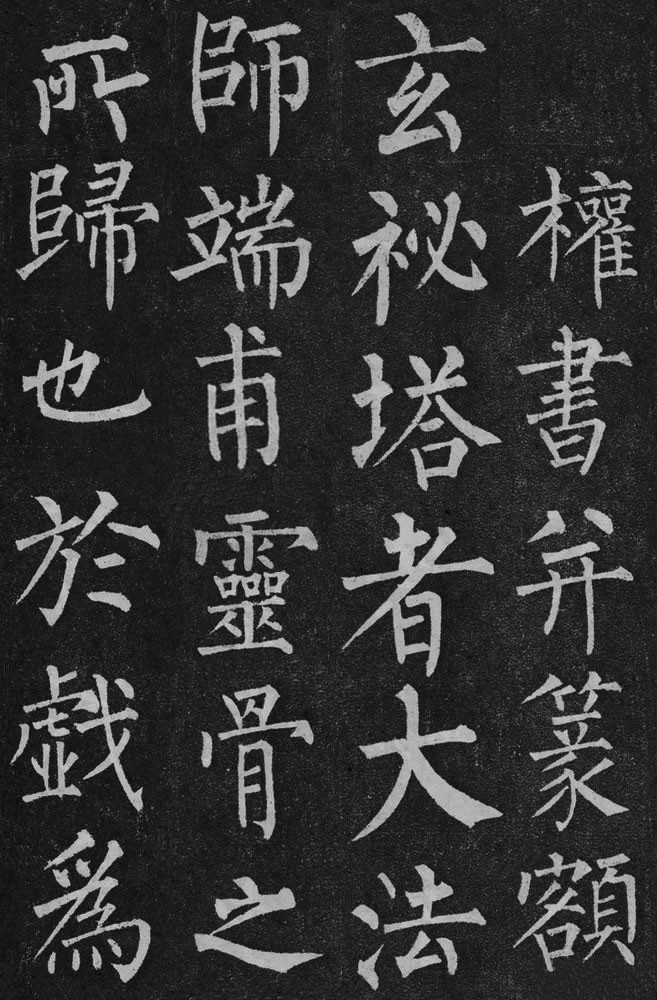 權書并篆額
玄祕塔者大法
師端甫靈骨之
所歸也於戲為